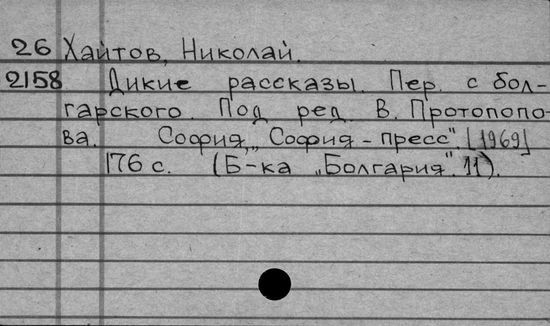 26 Хайтов, Николай.
2158 Дикие рассказы. Пер. с бол-
гарского. Под ред. В. Протопопо-
ва. София, „София-пресс". [1969]
176 с. (Б-ка „Болгария". 11).